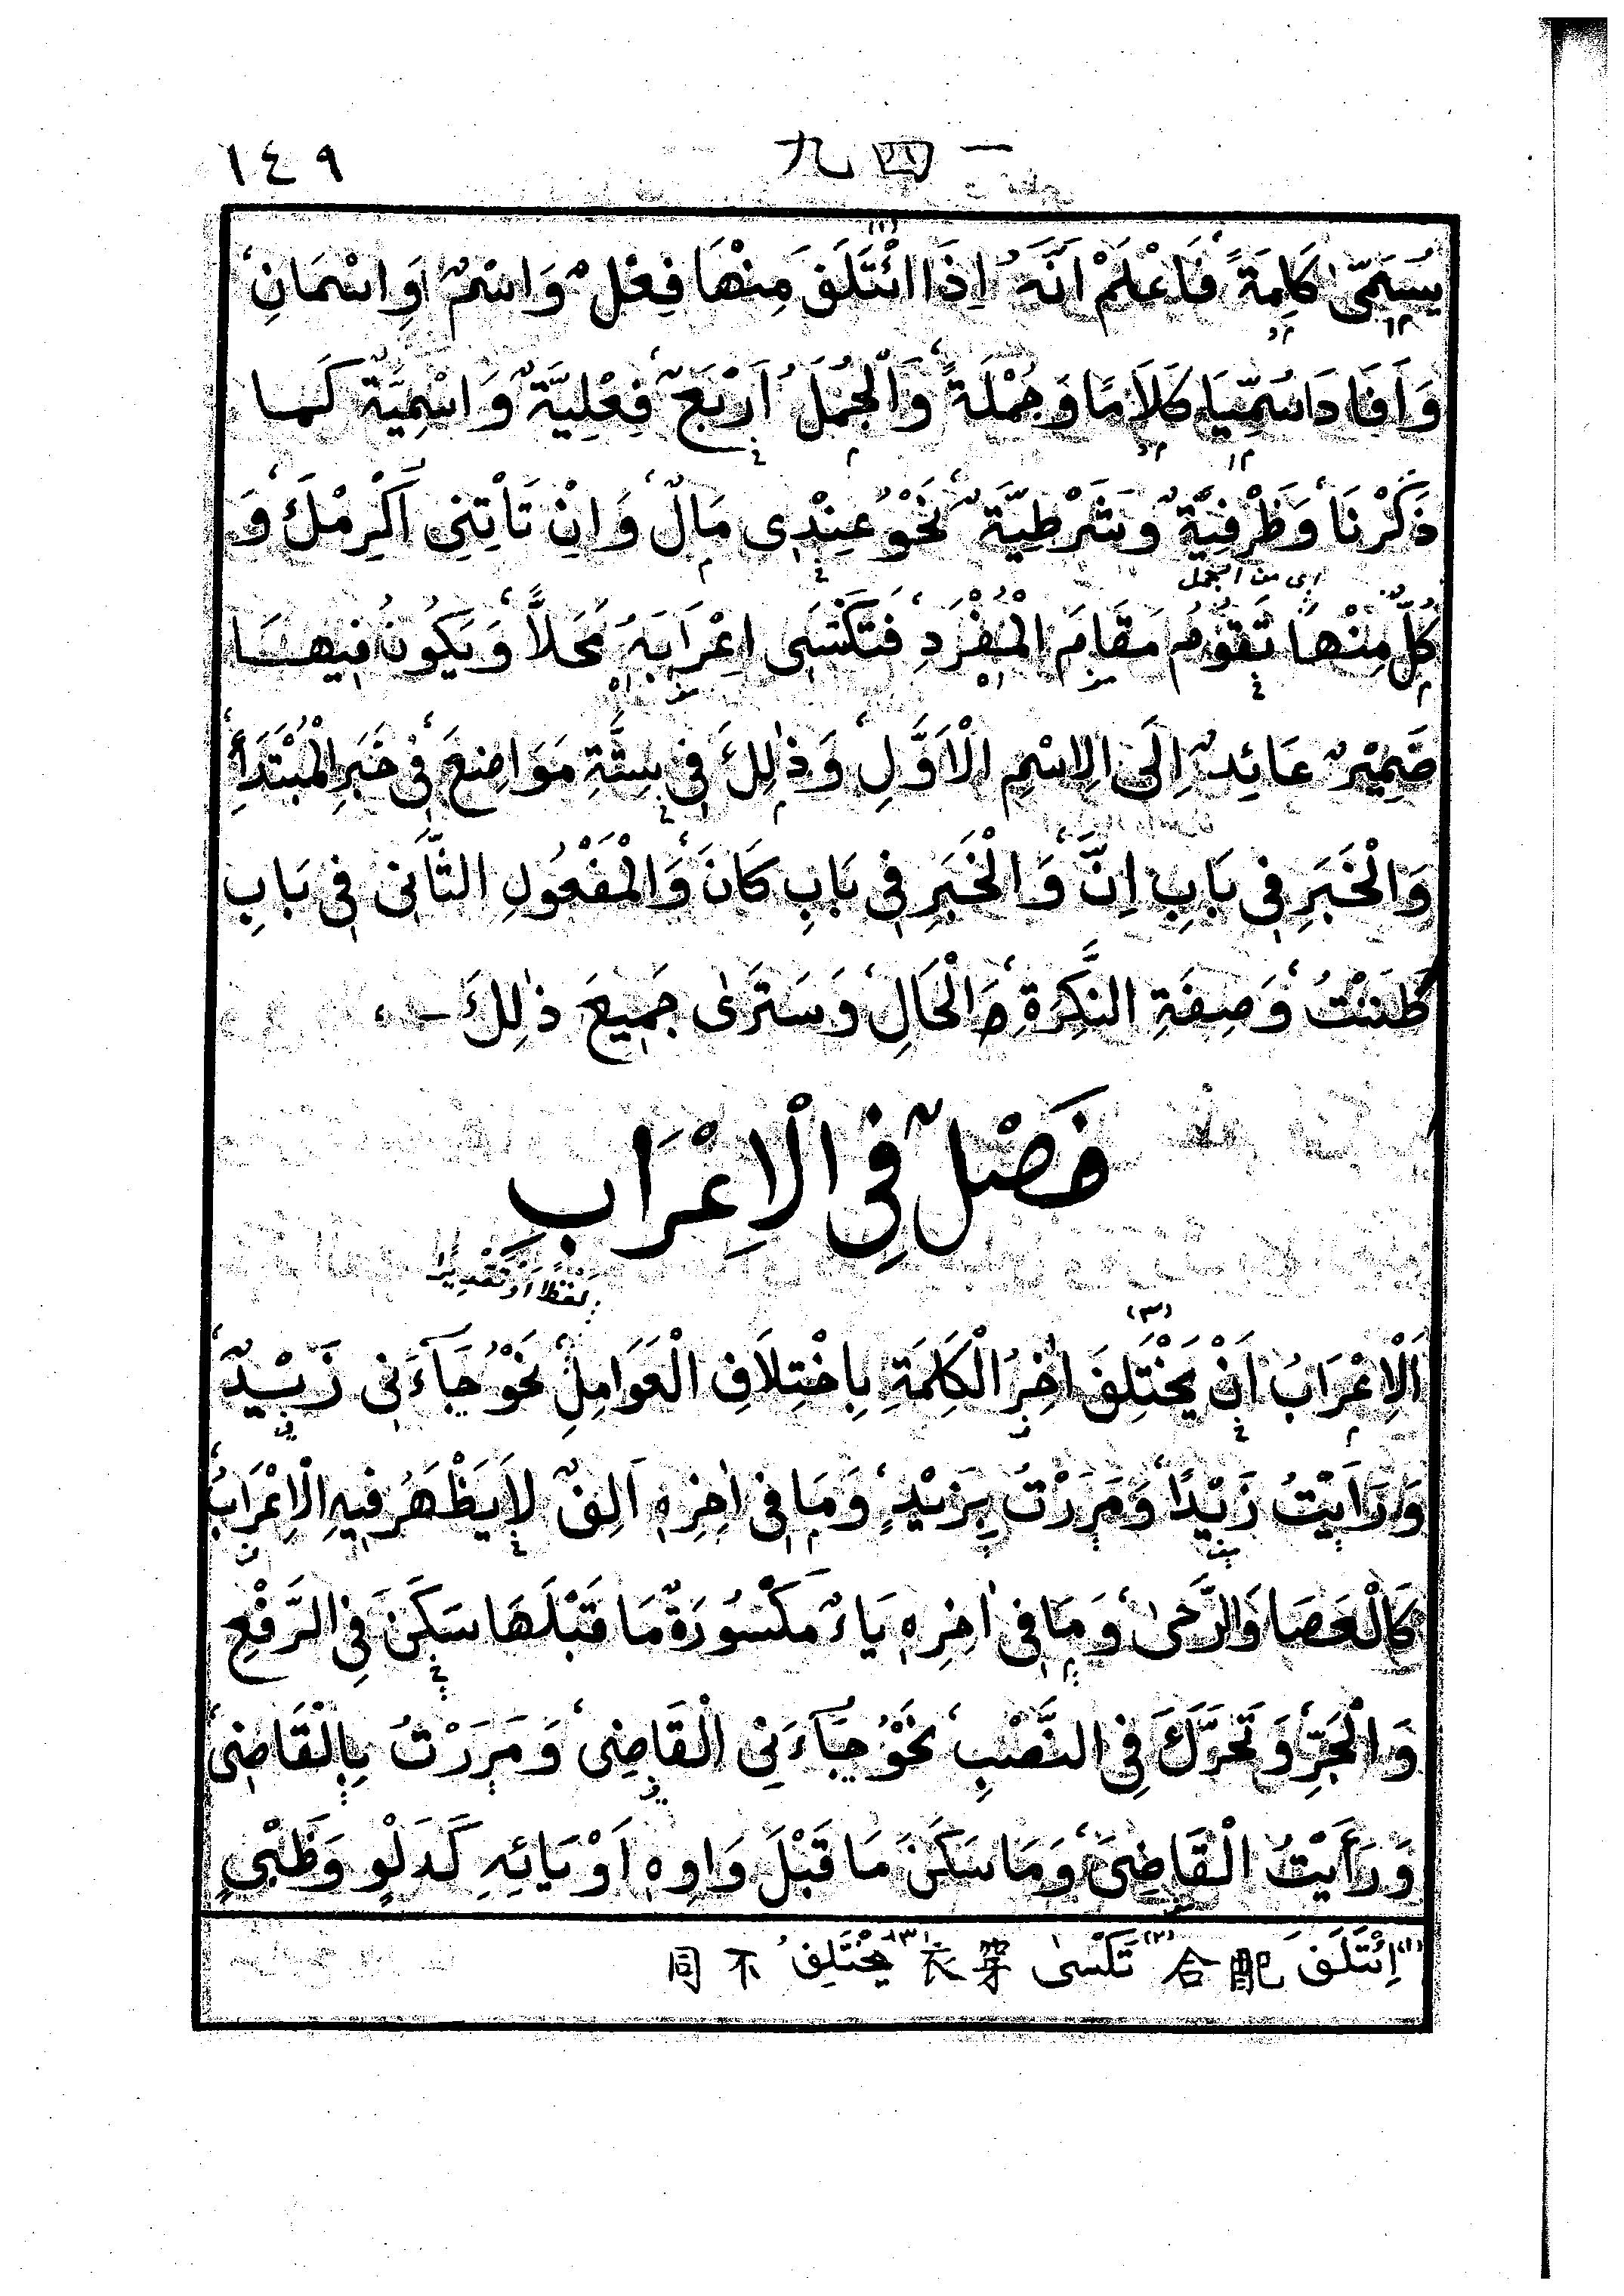 一四九 ١٤٩
يُسَمّٰى كَلِمَةً فَاعْلَمْ اَنَّهُ اِذَا ائْتَلَفَ (١) مِنْهَا فِعْلٌ وَاسْمٌ اَوِاسْمَانِ
وَاَفَادَا سُمِّيَا كَلَامًا وَجُمْلَةً وَالْجُمَلُ اَرْبَعٌ فِعْلِيَّةٌ وَاسْمِيَّةٌ كَمَا
ذَكَرْنَا وَظَرْفِيَّةٌ وَشَرْطِيَّةٌ نَحْوُ عِنْدِى مَالٌ وَاِنْ تَأْتِنِى اُكْرِمْكَ وَ
اى من الجمل
كُلٌّ مِنْهَا تَقُوْمُ مَقَامَ الْمُفْرَدِ فَتَكْتَسِى اِعْرَابَهُ مَحَلًّا وَيَكُوْنُ فِيهَا
ضَمِيْرٌ عَائِدٌ اِلَى الِاسْمِ الْاَوَّلِ وَذٰلِكَ فِى سِتَّةِ مَوَاضِعَ فِى خَبَرِ الْمُبْتَدَأِ
وَالْخَبَرِ فِى بَابِ اِنَّ وَالْخَبَرِ فِى بَابِ كَانَ وَالْمَفْعُوْلِ الثَّانِى فِى بَابِ
ظَنَنْتُ وَصِفَةِ النَّكِرَةِ وَالْحَالِ وَسَتَرٰى جَمِيْعَ ذٰلِكَ -
فَصْلٌ فِى الْاِعْرَابِ
لَفْظًا اَوْ تَقْدِيْرًا
اَلْاِعْرَابُ اَنْ يَخْتَلِفَ (٣) اٰخِرُ الْكَلِمَةِ بِاخْتِلَافِ الْعَوَامِلِ نَحْوُ جَآءَنِى زَيْدٌ
وَرَاَيْتُ زَيْدًا وَمَرَرْتُ بِزَيْدٍ وَمَا فِى اٰخِرِهٖ اَلِفٌ لَا يَظْهَرُ فِيْهِ الْاِعْرَابُ
كَالْعَصَا وَالرَّحٰى وَمَا فِى اٰخِرِهٖ يَاءٌ مَكْسُوْرَةٌ مَا قَبْلَهَا سَكَنَ فِى الرَّفْعِ
وَالْجَرِّ وَتَحَرَّكَ فِى النَّصْبِ نَحْوُ جَآءَنِى الْقَاضِىْ وَمَرَرْتُ بِالْقَاضِىْ
وَرَأَيْتُ الْقَاضِىَ وَمَا سَكَنَ مَا قَبْلَ وَاوِهٖ اَوْ يَائِهِ كَدَلْوٍ وَظَبْىٍ
(١) اِئْتَلَفَ 配合 (٢) تَكْسٰى 穿衣 (٣) يَخْتَلِفُ 不同